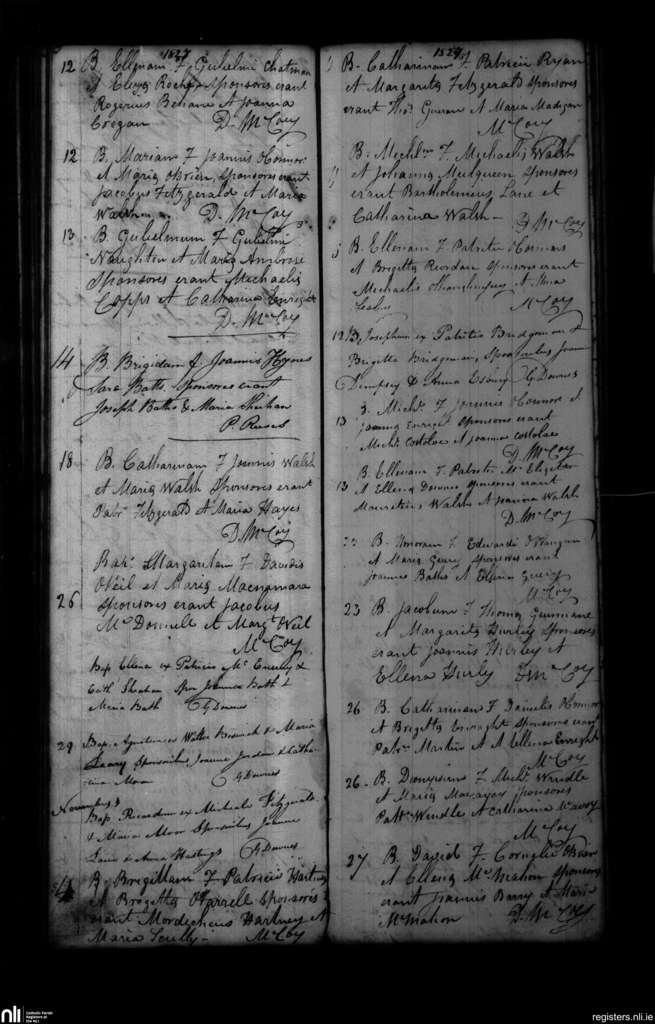 1827
12 B. Ellenam F Gulielmi
et Eliza Roche Sponsores erant
Rogerius Behane et Joanna
Crogan D. McCoy
12 B. Mariam F Joannis OConnor
et Maria Obrien, Sponsores erant
Jacobus Fitzgerald et Maria
D. McCoy
13 B. Gulielmum F Gulielmi
Naughton et Maria Ambrose
Sponsores erant Michaelis
Copps et Catharina Enright
D. McCoy
14 B. Brigidam f. Joannis Hynes
Sara Batts. Sponsores erant
Joseph Batts & Maria Sheehan
P.
18 B. Catharinam F Joannis Walsh
et Maria Walsh Sponsores erant
Patr. Fitzgerald et Maria Hayes
D. McCoy
Bap. Margaritam F Davidis
ONeil et Maria Macnamara
26 Sponsores erant Jacobus
McDonnell et Margt. ONeil
McCoy
Bap. Ellena ex Patricio Mc &
Cath. Sheehan Joannes Bath &
Maria Bath G Downes
29 Bap. & Maria
Leary Sponsoribus Joanne Jordan & Catha
rina Moor G Downes
Novemb. 3
Bap. Ricardum ex Michaele Fitzgerald
& Maria Moor Sponsoribus Joanne
& Anna Hastings G Downes
4 B. Bregittam F Patricii Hartney
et Bregitta OFarrell Sponsores
erant Mordecheus Hartney et
Maria Scully - McCoy
1827
B. Catharinam F Patricii Ryan
et Margarita Fitzgerald Sponsores
erant Thos. et Maria Madigan
McCoy
B. F. Michaelis Walsh
et Johanna Sponsores
erant Bartholomeus Lane et
Catharina Walsh - D McCoy
B. Ellenam F Patricii OConnors
et Brigetta Riordan Sponsores erant
Michaelis et Anna
McCoy
12 B. Josephum ex Patritio Bridgeman &
Brigetta Bridgeman, Sponsoribus Joanne
Dempsey & Anna G Downes
B. Michl. F Joannis OConnor et
13 Joanna Enright Sponsores erant
Michl. Costoloe et Joanna Costoloe
D. McCoy
B. Ellenam F Patricii
13 et Ellena Downes Sponsores erant
Mauritius Walsh et Joanna Walsh
D. McCoy
23 B. Honoram F Edwardi
et Maria Geary Sponsores erant
Joannes Batts et Ellena
McCoy
23 B. Jacobum F Thoma
et Margarita Hurley Sponsores
erant Joannis Hurley et
Ellena Hurly McCoy
26 B. Catharinam F Danielis OConnor
et Brigetta Enright Sponsores erant
Patr. et Ellena Enright
McCoy
26. B. Dionysium F Michl. Windle
et Maria Sponsores
Patk. Windle et Catharina McAvoy
McCoy
27 B. David F. Cornelii
et Ellena McMahon Sponsores
erant Joannis Barry et Maria
McMahon D. McCoy
nli Catholic Parish
Registers at
the NLI
registers.nli.ie